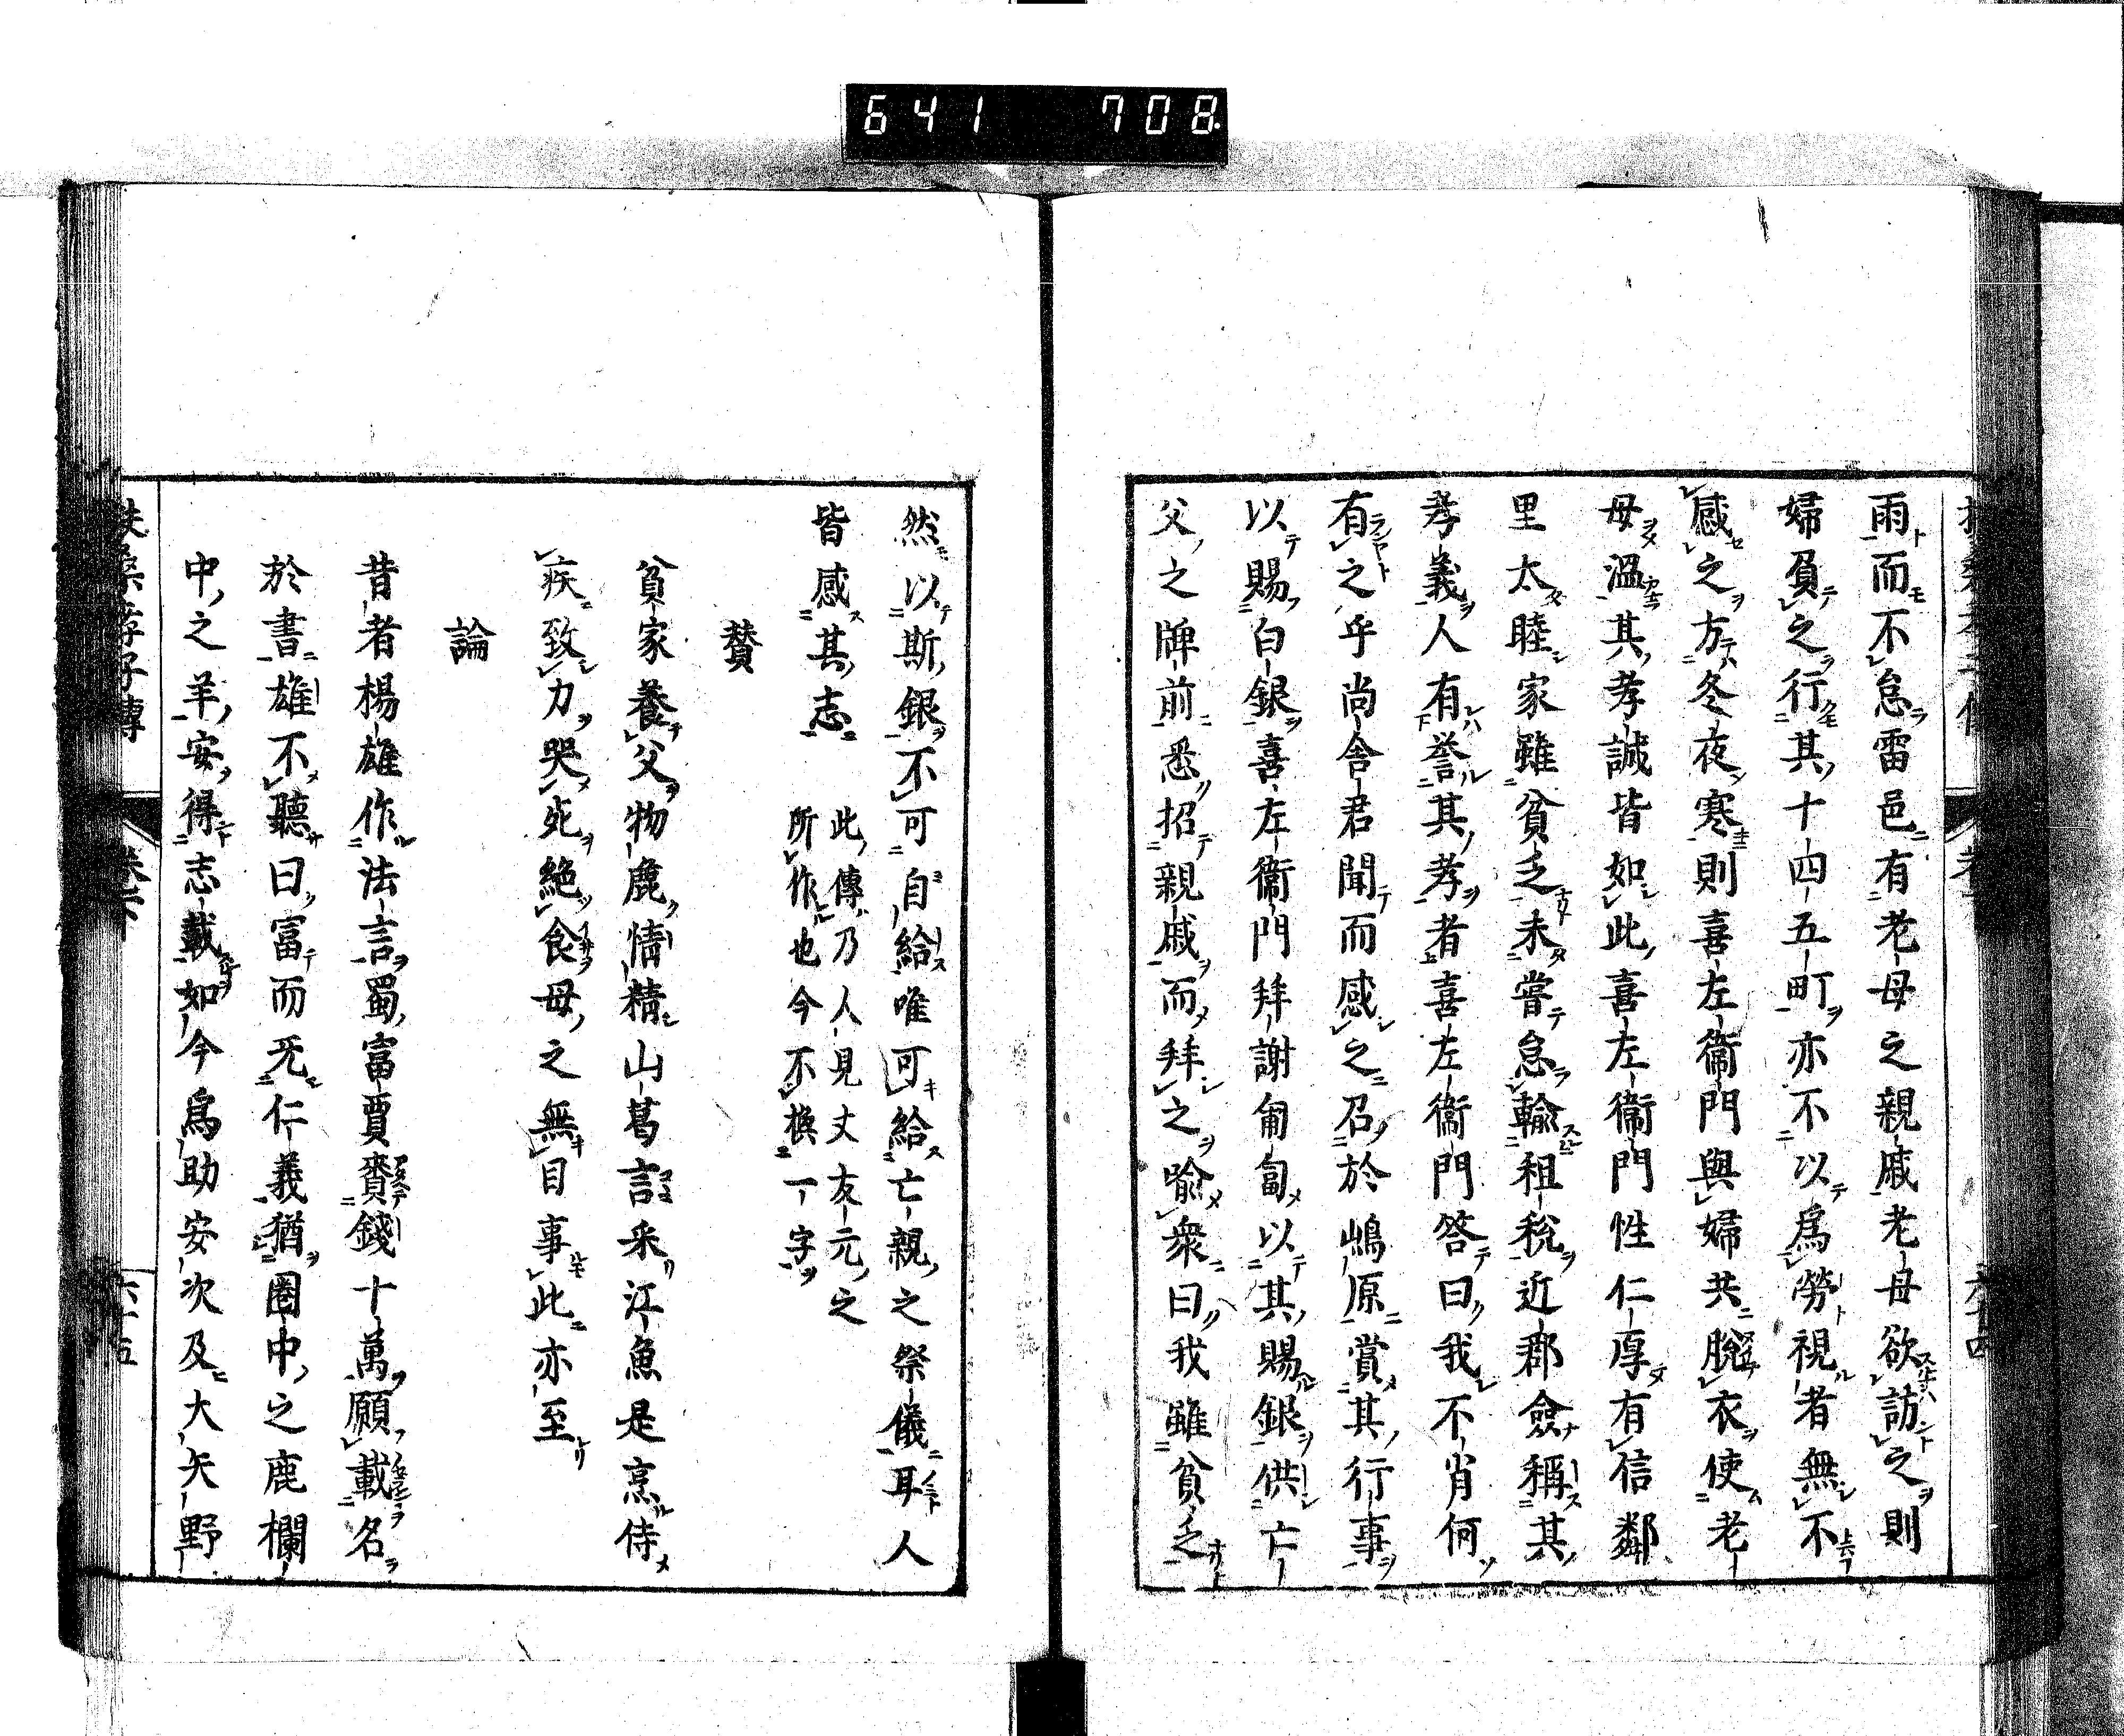 641 708
雨而不怠雷邑有老母之親戚老母欲訪之則
婦負之行其十四五町亦不以爲勞視者無不
感之方冬夜寒則喜左衞門與婦共脫衣使老
母溫其孝誠皆如此喜左衞門性仁厚有信鄰
里太睦家雖貧乏未嘗怠輸租稅近郡僉稱其
孝義人有誉其孝者喜左衞門答曰我不肖何
有之乎尚舎君聞而感之召於嶋原賞其行事
以賜白銀喜左衞門拜謝匍匐以其賜銀供亡
父之牌前悉招親戚而拜之喩衆曰我雖貧乏
然以斯銀不可自給唯可給亡親之祭儀耳人
皆感其志
此傳乃人見丈友元之
所作也今不換一字
賛
貧家養父物麁情精山葛言采江魚是烹侍
疾致力哭死絕食母之無目事此亦至
論
昔者楊雄作法言蜀富賈賷錢十萬願載名
於書雄不聽曰富而无仁義猶圈中之鹿欄
中之羊安得志載如今爲助安次及大矢野
扶桑孝子傳 卷下 六十五